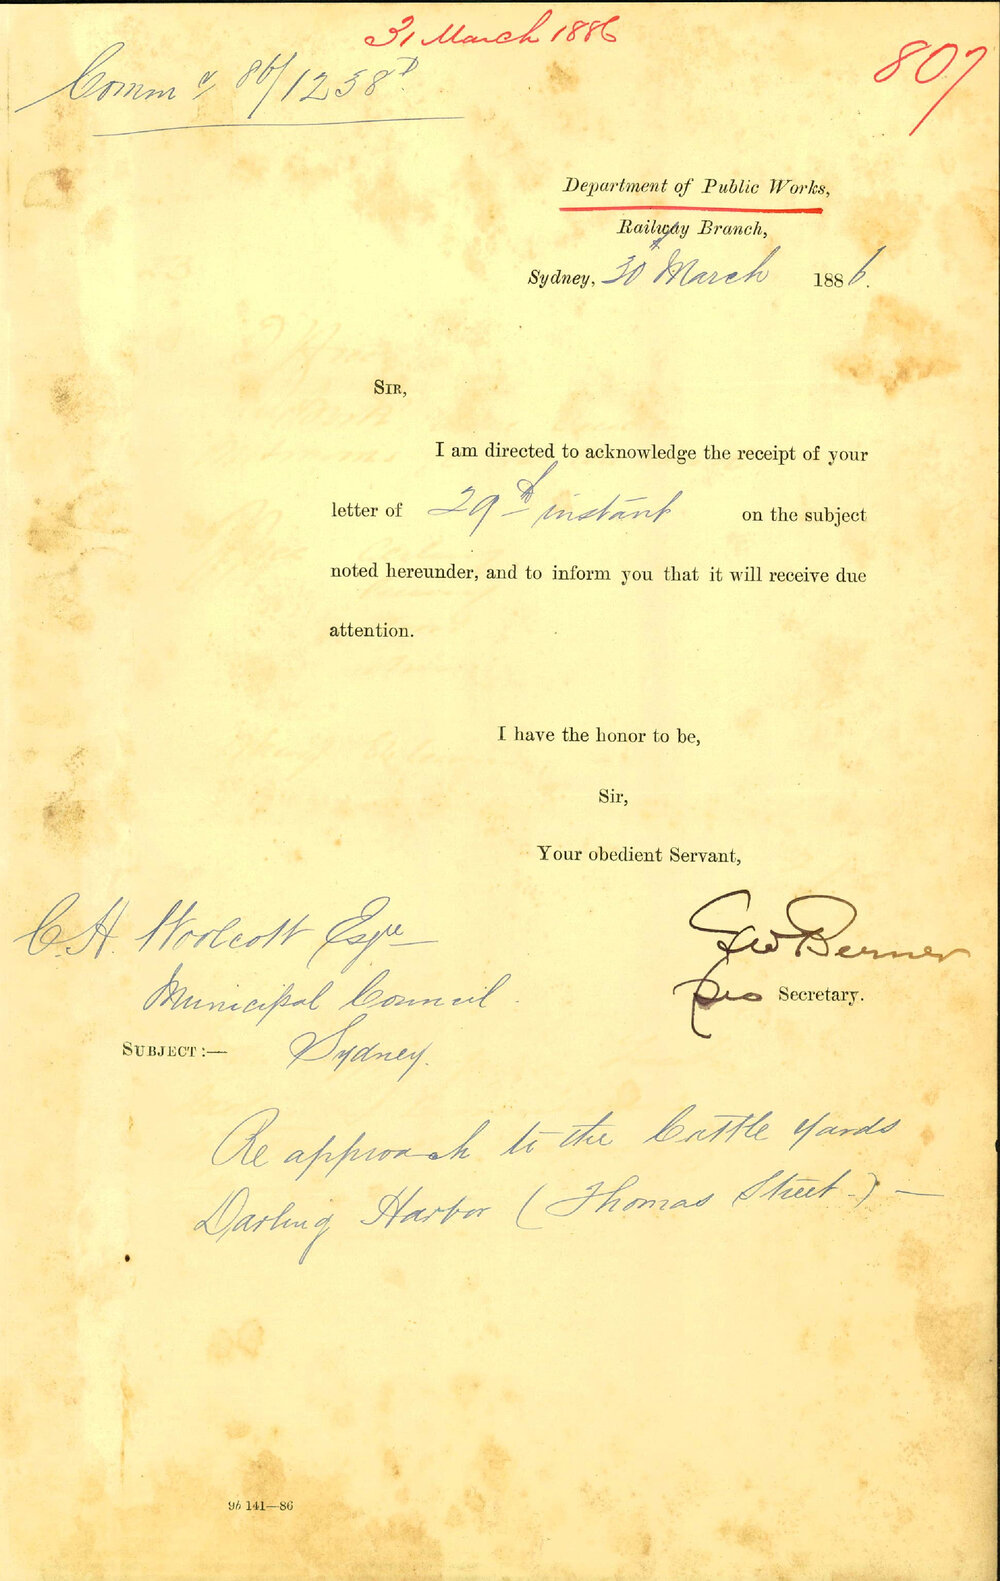 31 March 1886
807
Commr 86/1238D
Department of Public Works,
Railway Branch,
Sydney, 30th March 1886.
SIR,
I am directed to acknowledge the receipt of your
letter of 29th instant on the subject
noted hereunder, and to inform you that it will receive due
attention.
I have the honor to be,
Sir,
Your obedient Servant,
Geo Berner
pro Secretary.
C. H. Woolcott Esqre
Municipal Council
Sydney.
SUBJECT:—
Re approach to the Cattle yards
Darling Harbor (Thomas Street.) —
9b 141—86